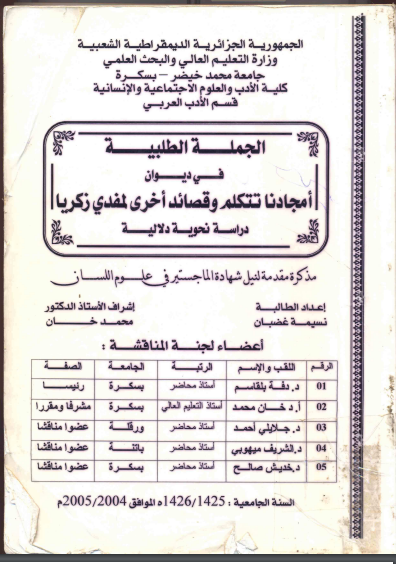 الجمهورية الجزائرية الديمقراطية الشعبية
وزارة التعليم العالي والبحث العلمي
جامعة محمد خيضر – بسكرة
كلية الأدب والعلوم الاجتماعية والإنسانية
قسم الأدب العربي
الجملة الطلبية
في ديوان
أمجادنا تتكلم وقصائد أخرى لمفدي زكريا
دراسة نحوية دلالية
مذكرة مقدمة لنيل شهادة الماجستير في علوم اللسان
إعداد الطالبة إشراف الأستاذ الدكتور
نسيمة غضبان محمد خان
أعضاء لجنة المناقشة :
الرقم اللقب والإسم الرتبة الجامعة الصفة
01 د. دفة بلقاسم أستاذ محاضر بسكرة رئيسا
02 أ. د. خان محمد أستاذ التعليم العالي بسكرة مشرفا ومقررا
03 د. جلايلي أحمد أستاذ محاضر ورقلة عضوا مناقشا
04 د. الشريف ميهوبي أستاذ محاضر باتنة عضوا مناقشا
05 د. خديش صالح أستاذ محاضر بسكرة عضوا مناقشا
السنة الجامعية : 1426/1425ه الموافق 2005/2004م